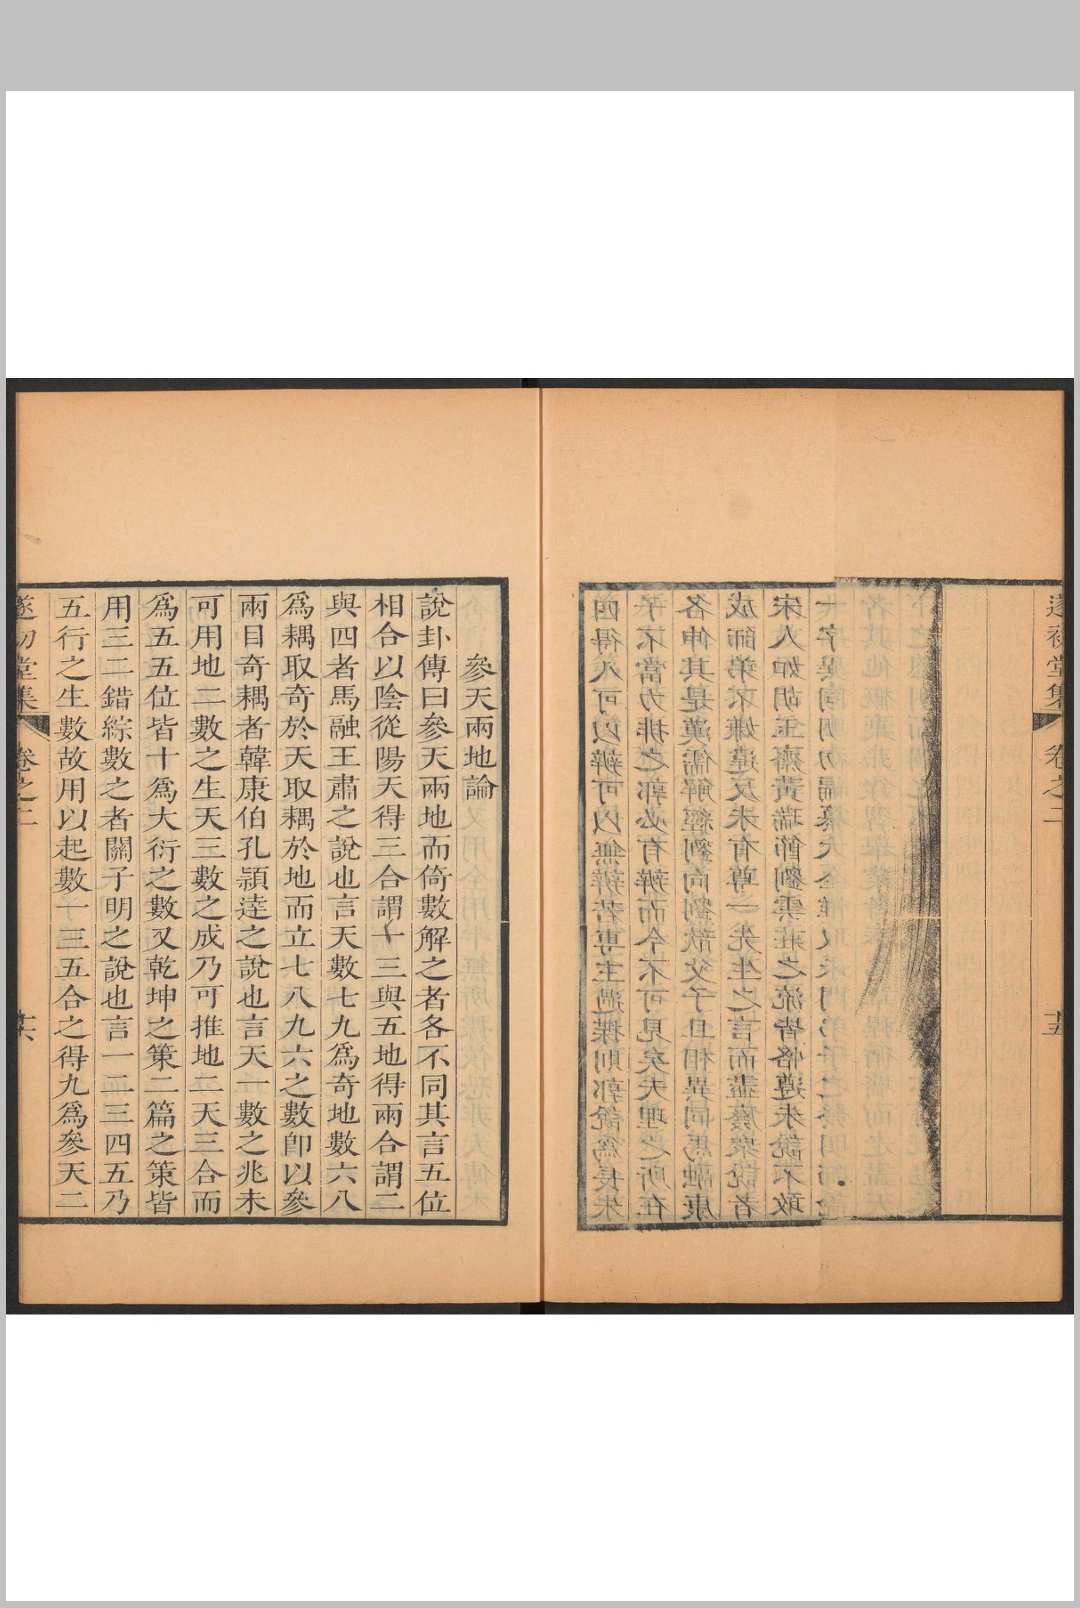 遂初堂集 卷之二 十五
四得失可以辨可以無辨若專主過揲則郭說爲長朱
子不當力排之郭必有辨而今不可見矣夫理之所在
各伸其是漢儒解經劉向劉歆父子且相異同馬融康
成師弟不嫌違反未有尊一先生之言而盡廢衆說者
宋人如胡玉齋黃瑞節劉雲莊之流皆恪遵朱說不敢
參天兩地論
說卦傳曰參天兩地而倚數解之者各不同其言五位
相合以陰從陽天得三合謂一三與五地得兩合謂二
與四者馬融王肅之說也言天數七九爲奇地數六八
爲耦取奇於天取耦於地而立七八九六之數卽以參
兩目奇耦者韓康伯孔頴逹之說也言天一數之兆未
可用地二數之生天三數之成乃可推地二天三合而
爲五五位皆十爲大衍之數又乾坤之策二篇之策皆
用三二錯綜數之者關子明之說也言一二三四五乃
五行之生數故用以起數一三五合之得九爲參天二
遂初堂集 卷之二 十六